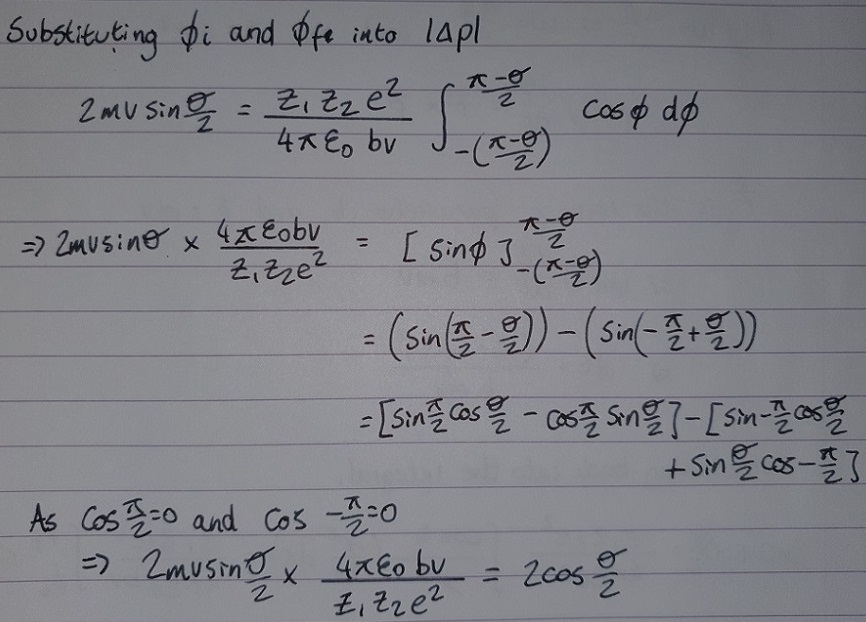 Substituting ϕi and ϕfe into |Δp|
2mv sin θ/2 = Z₁Z₂e²/(4πε₀ bv) ∫_{-(π-θ/2)}^{π-θ/2} cosϕ dϕ
=> 2mvsinθ × 4πε₀bv/(Z₁Z₂e²) = [sinϕ]_{-(π-θ/2)}^{π-θ/2}
= (sin(π/2 - θ/2)) - (sin(-π/2 + θ/2))
= [sin π/2 cos θ/2 - cos π/2 sin θ/2] - [sin -π/2 cos θ/2
+ sin θ/2 cos - π/2]
As cos π/2 = 0 and cos -π/2 = 0
=> 2mvsin θ/2 × 4πε₀ bv/(Z₁Z₂e²) = 2cos θ/2